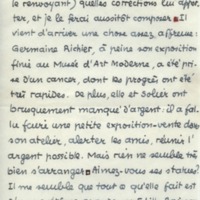 le renvoyant) quelles corrections lui appor-
ter, et je le ferai aussitôt composer. Il
vient d'arriver une chose assez affreuse:
Germaine Richier, à peine son exposition
fini au Musée d'Art Moderne, a été pri-
se d'un cancer, dont les progrès ont été
très rapides. De plus, elle et Solier ont
brusquement manqué d'argent: il a fal-
lu faire une petite exposition-vente dans
son atelier, alerter les amis, réunir l'
argent possible. Mais rien ne semble très
bien s'arranger. Aimez-vous ses statues?
Il me semble que tout ce qu'elle fait est